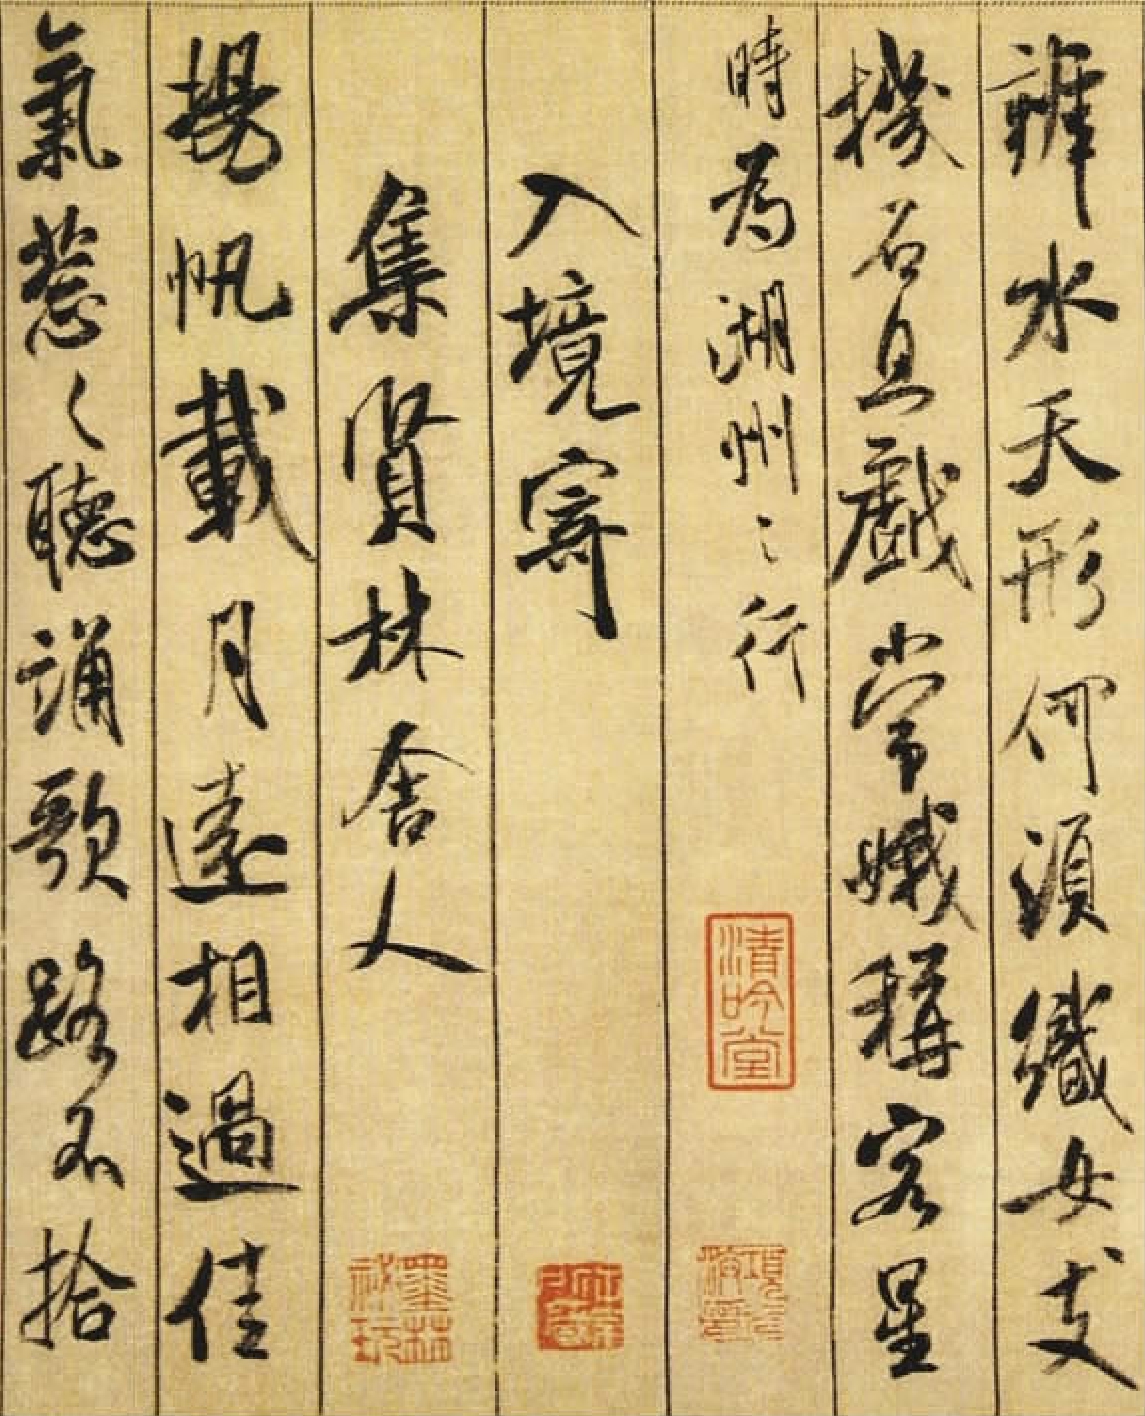 辨水天形何須織女支
機石且戲常娥稱客星
時為湖州之行
清吟堂
入境寄
集賢林舍人
墨林祕玩
揚帆載月遠相過佳
氣蔥々聽誦歌路不拾